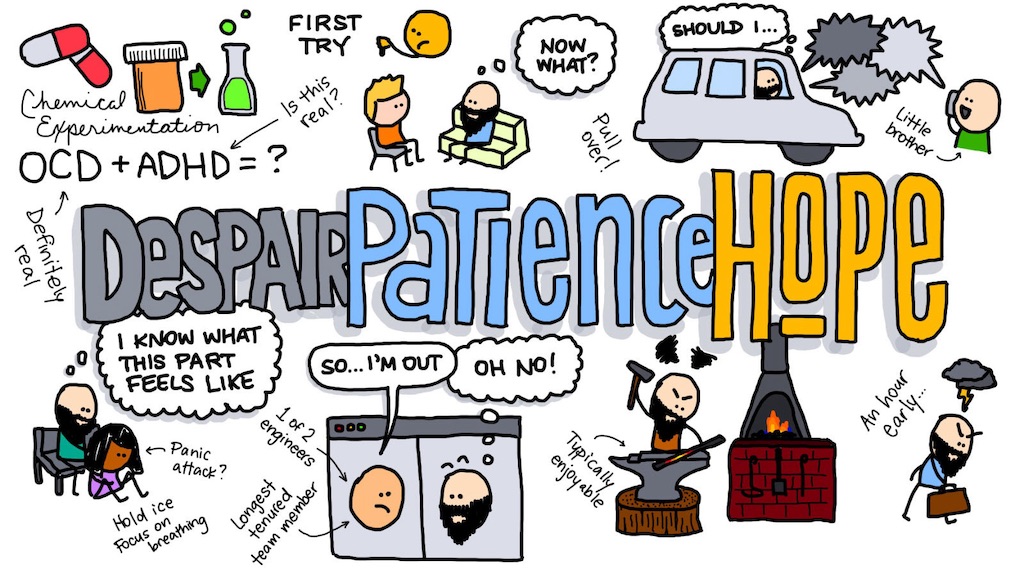 Chemical
Experimentation
OCD + ADHD = ?
Is this
real?
Definitely
real
FIRST
TRY
NOW
WHAT?
SHOULD I...
Pull
over!
Little
brother
DESPAIR PATIENCE HOPE
I KNOW WHAT
THIS PART
FEELS LIKE
Panic
attack?
Hold ice
Focus on
breathing
SO...I'M OUT
OH NO!
1 of 2
engineers
Longest
tenured
team member
Typically
enjoyable
An hour
early...